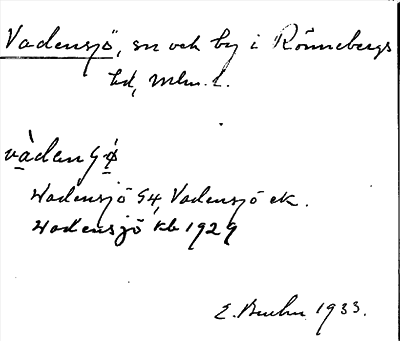 Vadensjö, sn och by i Rönnebergs
hd, Mlm. l.
vàdenʃø̀
Wadensjö G4, Vadensjö ek.
Wadensjö kb 1929
E. Bruhn 1933.